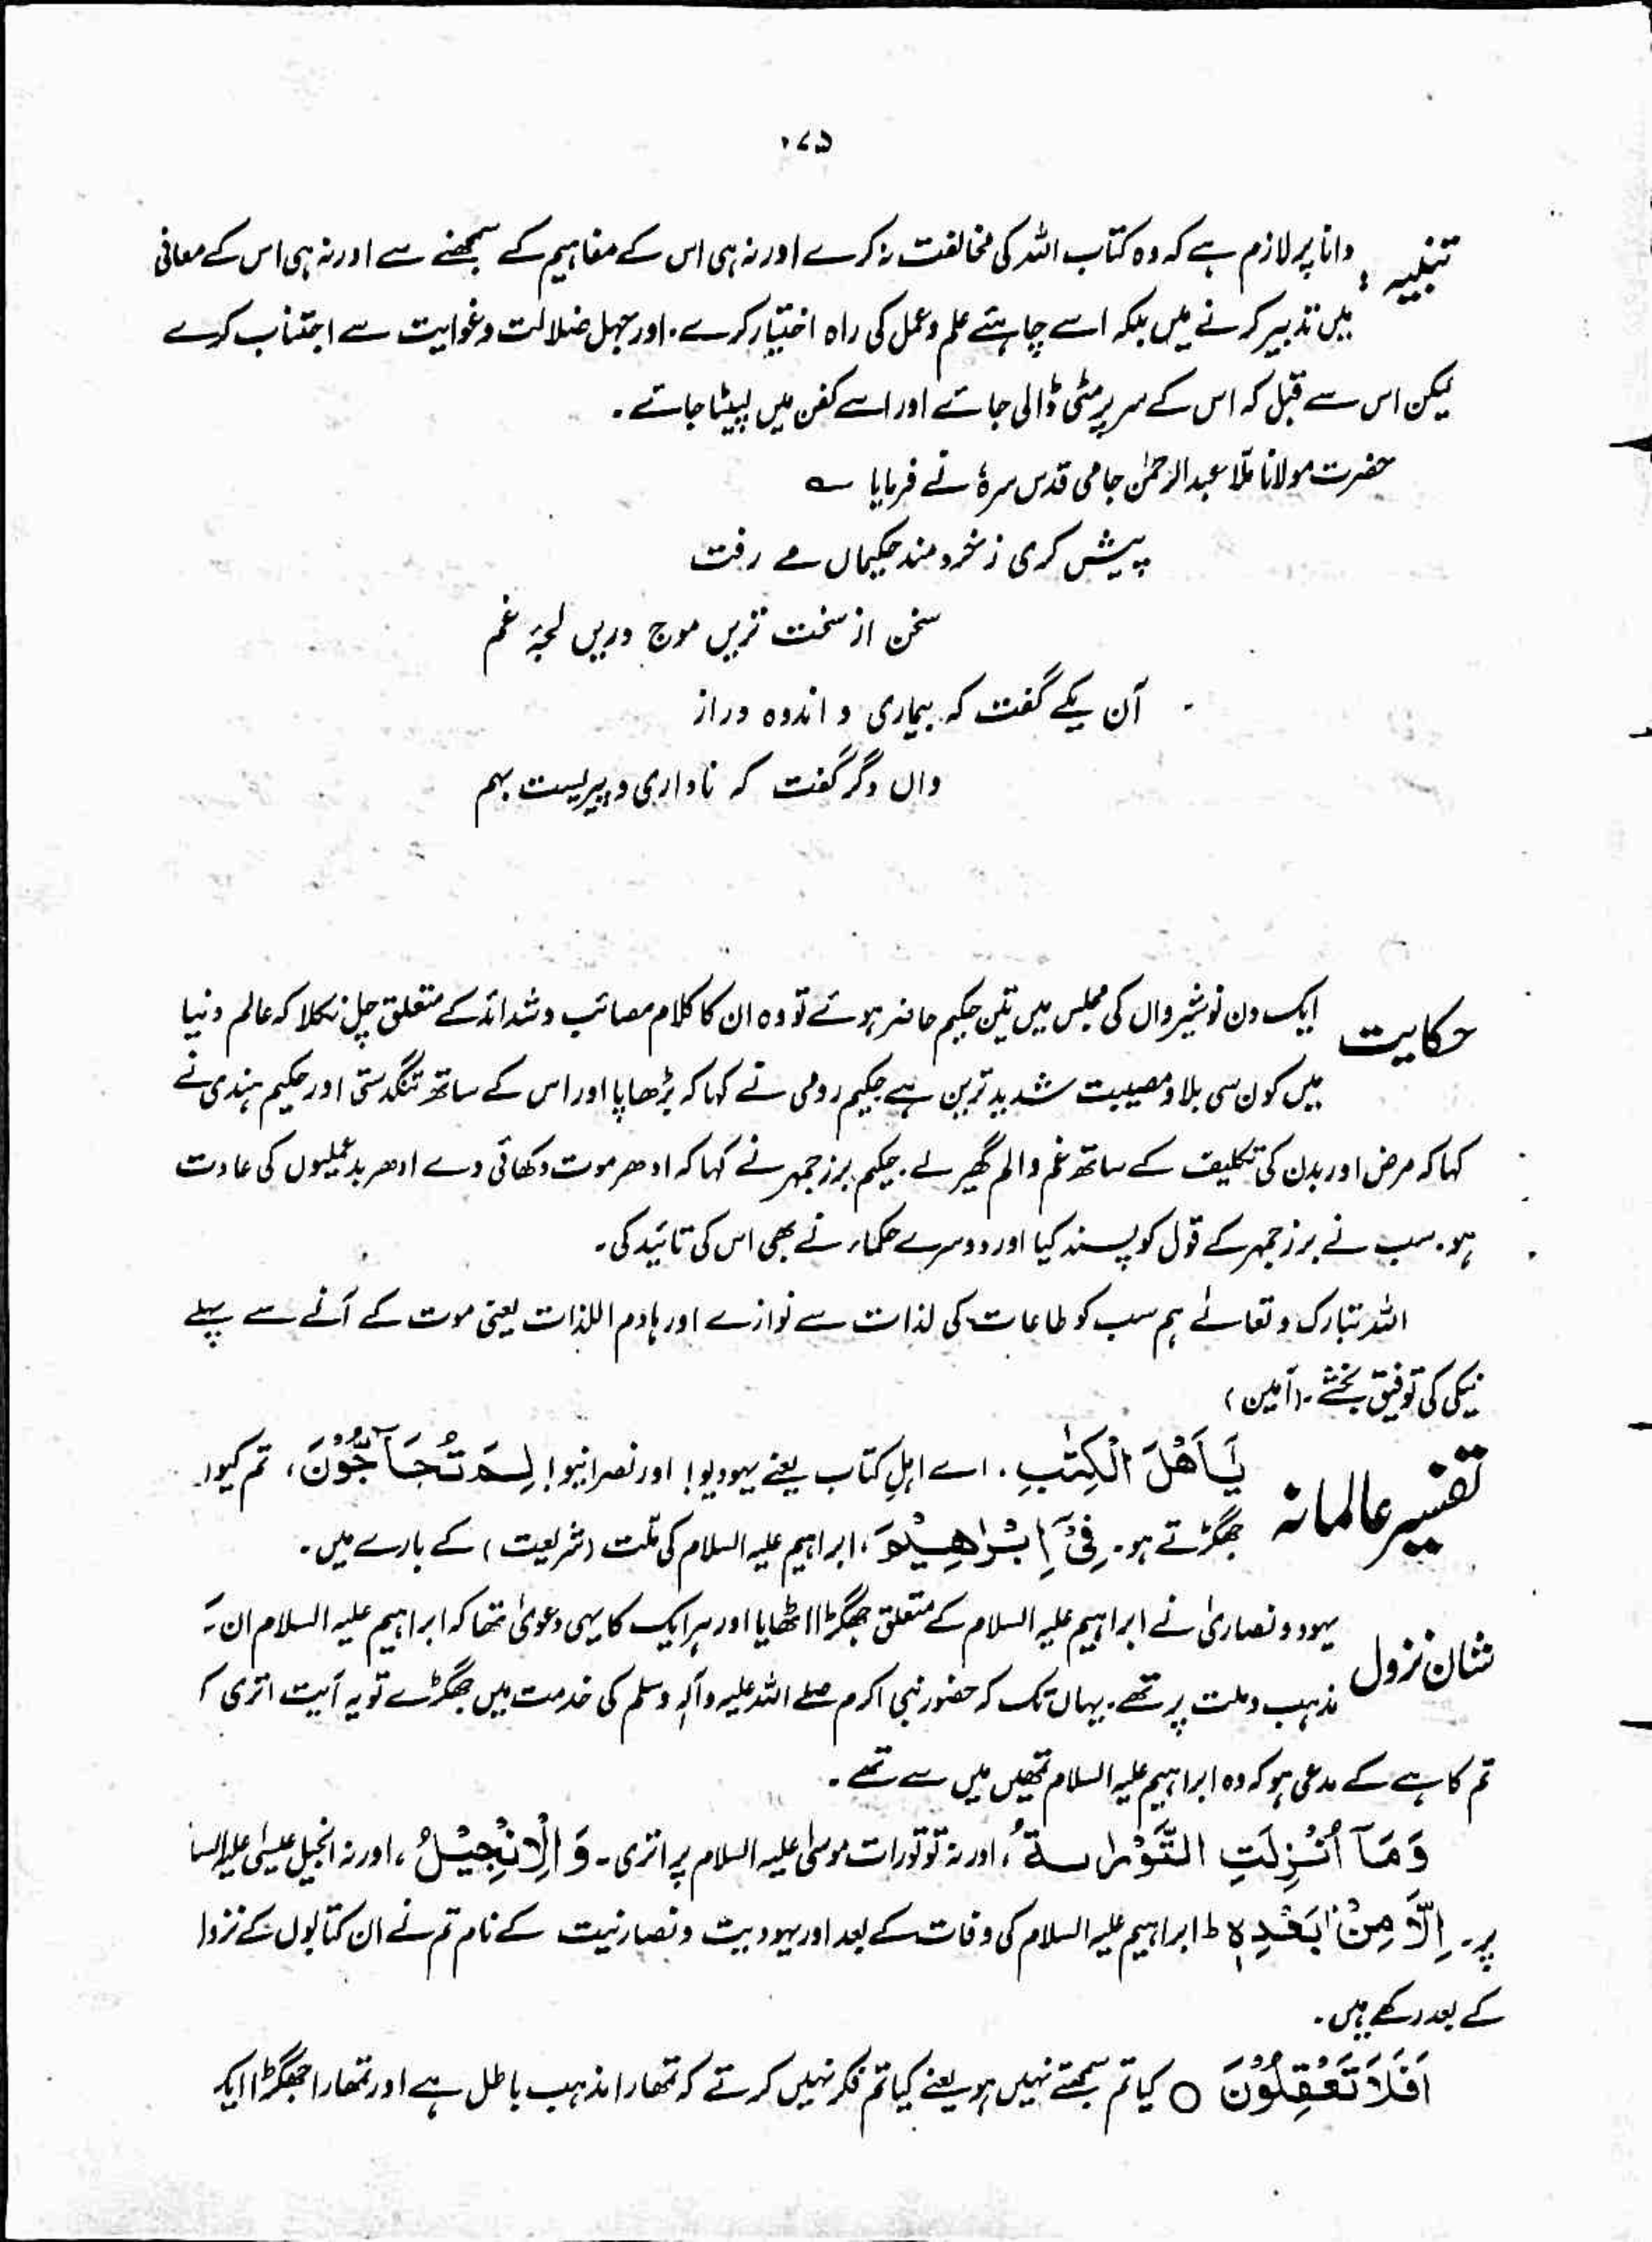 ۲۷۵
تنبیہ : دانا پر لازم ہے کہ وہ کتاب اللہ کی مخالفت نہ کرے اور نہ ہی اس کے مفاہیم کے سمجھنے سے اور نہ ہی اس کے معانی
میں تدبیر کرنے میں بلکہ اسے چاہئے علم و عمل کی راہ اختیار کرے۔ اور جہل ضلالت و غوایت سے اجتناب کرے
لیکن اس سے قبل کہ اس کے سر پر مٹی ڈالی جائے اور اسے کفن میں لپیٹا جائے۔
حضرت مولانا ملّا عبدالرحمٰن جامی قدس سرہٗ نے فرمایا ؎
پیش کری ز خرد مند حکیماں مے رفت
سخن از سخت تریں موج دریں لجۂ غم
آن یکے گفت کہ بیماری و اندوہ دراز
واں دگر گفت کہ ناداری و پیریست بہم
حکایت ایک دن نوشیرواں کی مجلس میں تین حکیم حاضر ہوئے تو وہ ان کا کلام مصائب و شدائد کے متعلق چل نکلا کہ عالم دنیا
میں کون سی بلا و مصیبت شدید ترین ہے حکیم رومی نے کہا کہ بڑھاپا اور اس کے ساتھ تنگدستی اور حکیم ہندی نے
کہا کہ مرض اور بدن کی تکلیف کے ساتھ غم و الم گھیر لے۔ حکیم بزرجمہر نے کہا کہ ادھر موت دکھائی دے ادھر بدعملیوں کی عادت
ہو۔ سب نے بزرجمہر کے قول کو پسند کیا اور دوسرے حکماء نے بھی اس کی تائید کی۔
اللہ تبارک و تعالےٰ ہم سب کو طاعات کی لذات سے نوازے اور ہادم اللذات یعنی موت کے آنے سے پہلے
نیکی کی توفیق بخشے۔ (آمین)
تفسیر عالمانہ یٰٓاَھْلَ الْکِتٰبِ، اے اہلِ کتاب یعنے یہودیو! اور نصرانیو! لِمَ تُحَآجُّوْنَ، تم کیوں
جھگڑتے ہو۔ فِیْٓ اِبْرٰھِیْمَ، ابراہیم علیہ السلام کی ملّت (شریعت) کے بارے میں۔
شان نزول یہود و نصاریٰ نے ابراہیم علیہ السلام کے متعلق جھگڑا اٹھایا اور ہر ایک کا یہی دعویٰ تھا کہ ابراہیم علیہ السلام ان کے
مذہب و ملت پر تھے۔ یہاں تک کہ حضور نبی اکرم صلے اللہ علیہ وآلہٖ وسلم کی خدمت میں جھگڑے تو یہ آیت اتری کہ
تم کاہے کے مدعی ہو کہ وہ ابراہیم علیہ السلام تمھیں میں سے تھے۔
وَمَآ اُنْزِلَتِ التَّوْرٰىةُ، اور نہ تو تورات موسیٰ علیہ السلام پر اتری۔ وَالْاِنْجِیْلُ، اور نہ انجیل عیسیٰ علیہ السلا
پر۔ اِلَّا مِنْۢ بَعْدِہٖ ط ابراہیم علیہ السلام کی وفات کے بعد اور یہودیت و نصارنیت کے نام تم نے ان کتابوں کے نزول
کے بعد رکھے ہیں۔
اَفَلَا تَعْقِلُوْنَ ○ کیا تم سمجھتے نہیں ہو یعنے کیا تم فکر نہیں کرتے کہ تمھارا مذہب باطل ہے اور تمھارا جھگڑا ایک